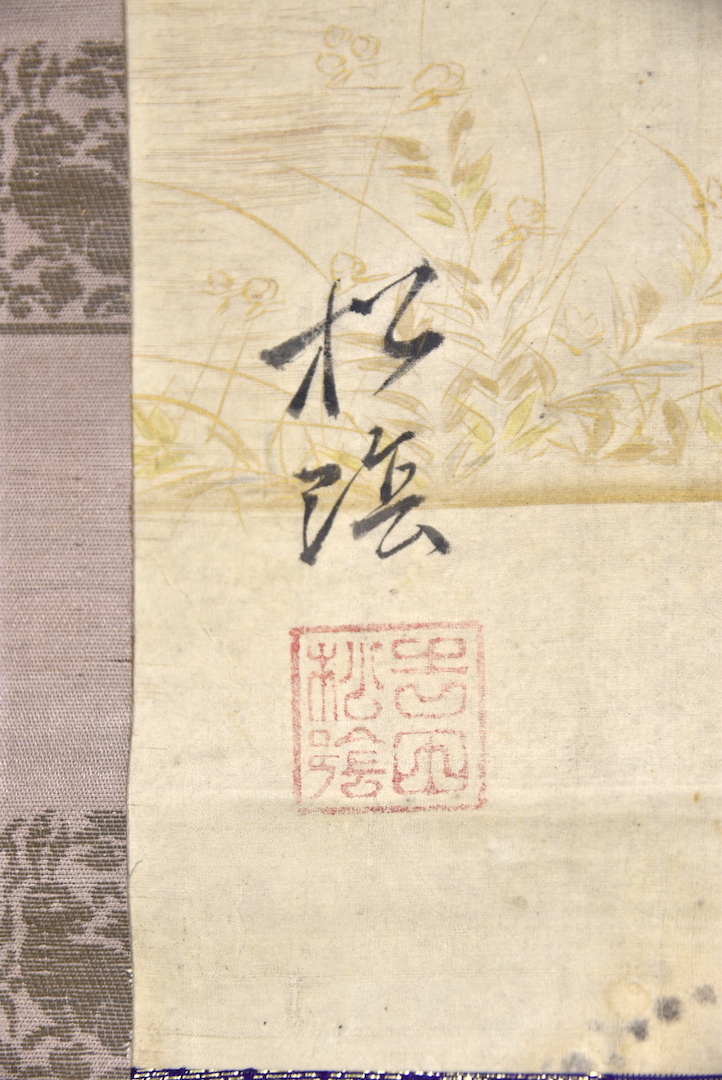 松陰
松陰